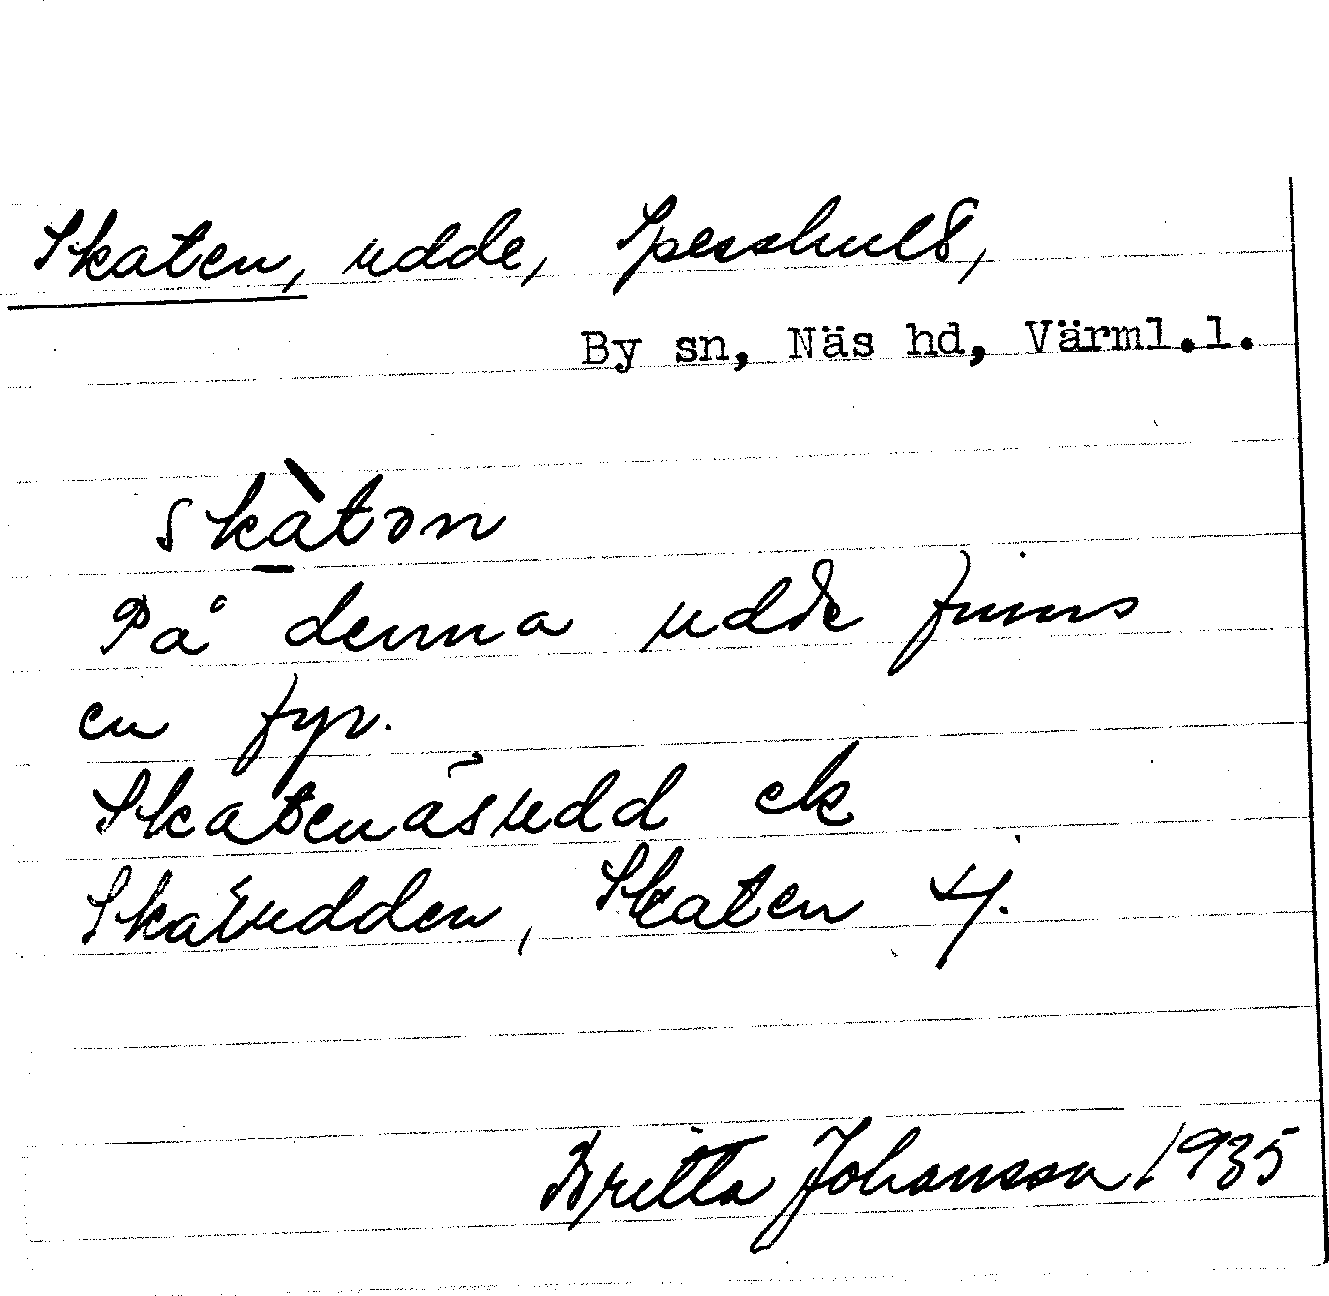 Skaten, udde, Spesshult,
By sn, Näs hd, Värml.l.
skàtɔn
På denna udde finns
en fyr.
Skatenäsudd ek
Skatudden, Skaten 4.
Britta Johansson 1935